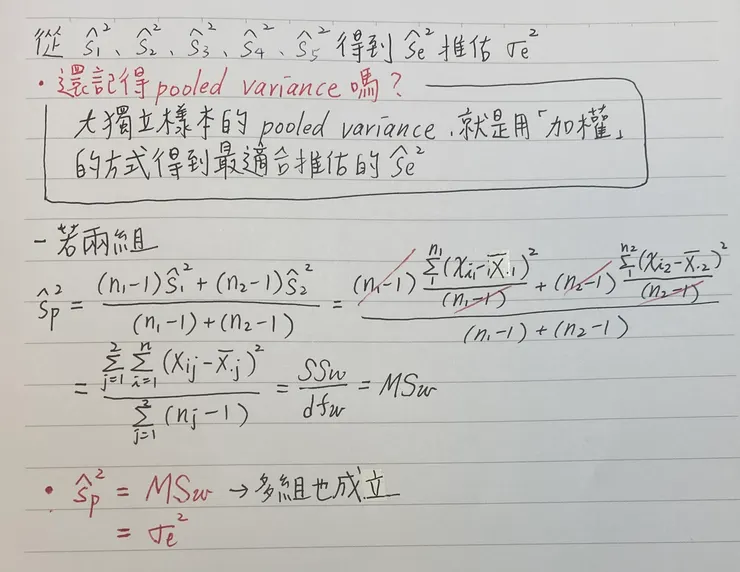 從 ŝ₁²、ŝ₂²、ŝ₃²、ŝ₄²、ŝ₅² 得到 ŝe² 推估 σe²
・還記得pooled variance嗎？
大獨立樣本的 pooled variance,就是用「加權」
的方式得到最適合推估的 ŝe²
-若兩組
ŝp² = ((n₁-1)ŝ₁² + (n₂-1)ŝ₂²) / ((n₁-1)+(n₂-1)) = ((n₁-1) Σ₁ⁿ¹(Xi₁-X̄.₁)²/(n₁-1) + (n₂-1) Σ₁ⁿ²(Xi₂-X̄.₂)²/(n₂-1)) / ((n₁-1)+(n₂-1))
= (Σⱼ₌₁² Σᵢ₌₁ⁿ (Xij-X̄.j)²) / (Σⱼ₌₁² (nj-1)) = SSw/dfw = MSw
・ŝp² = MSw → 多組也成立
= σe²